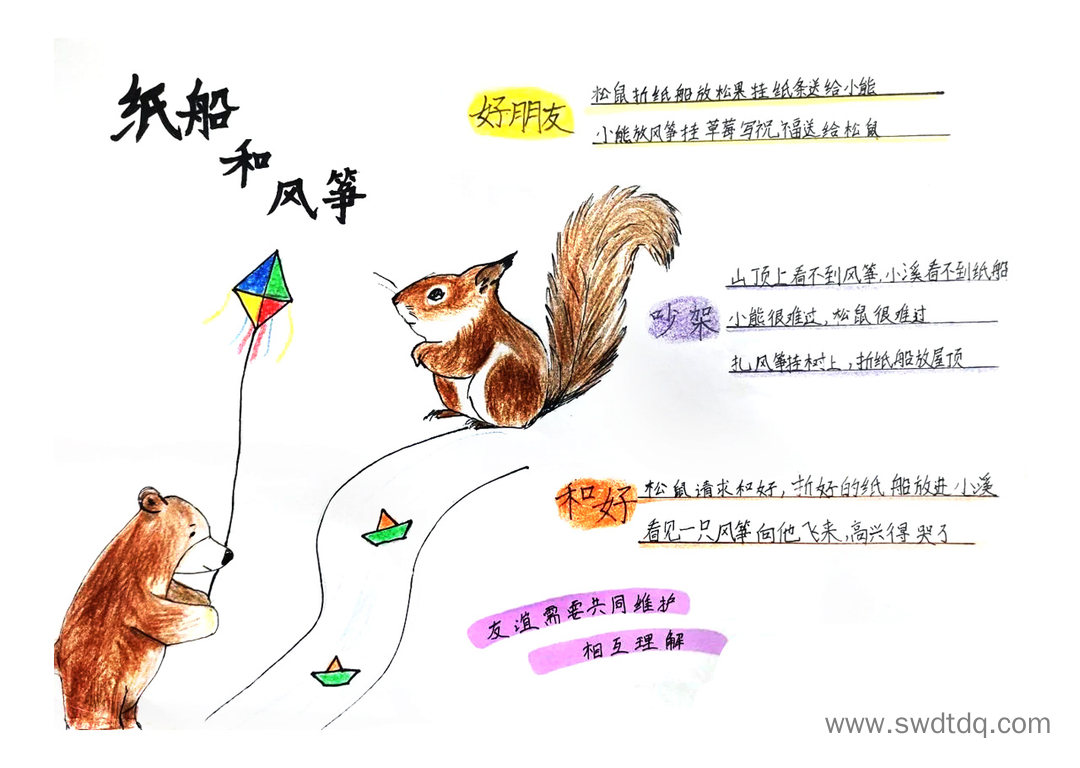 纸船
和
风筝
好朋友
松鼠折纸船放松果挂纸条送给小熊
小熊放风筝挂草莓写祝福送给松鼠
吵架
山顶上看不到风筝,小溪看不到纸船
小熊很难过,松鼠很难过
扎风筝挂树上,折纸船放屋顶
和好
松鼠请求和好,折好的纸船放进小溪
看见一只风筝向他飞来,高兴得哭了
友谊需要共同维护
相互理解
www.swdtdq.com